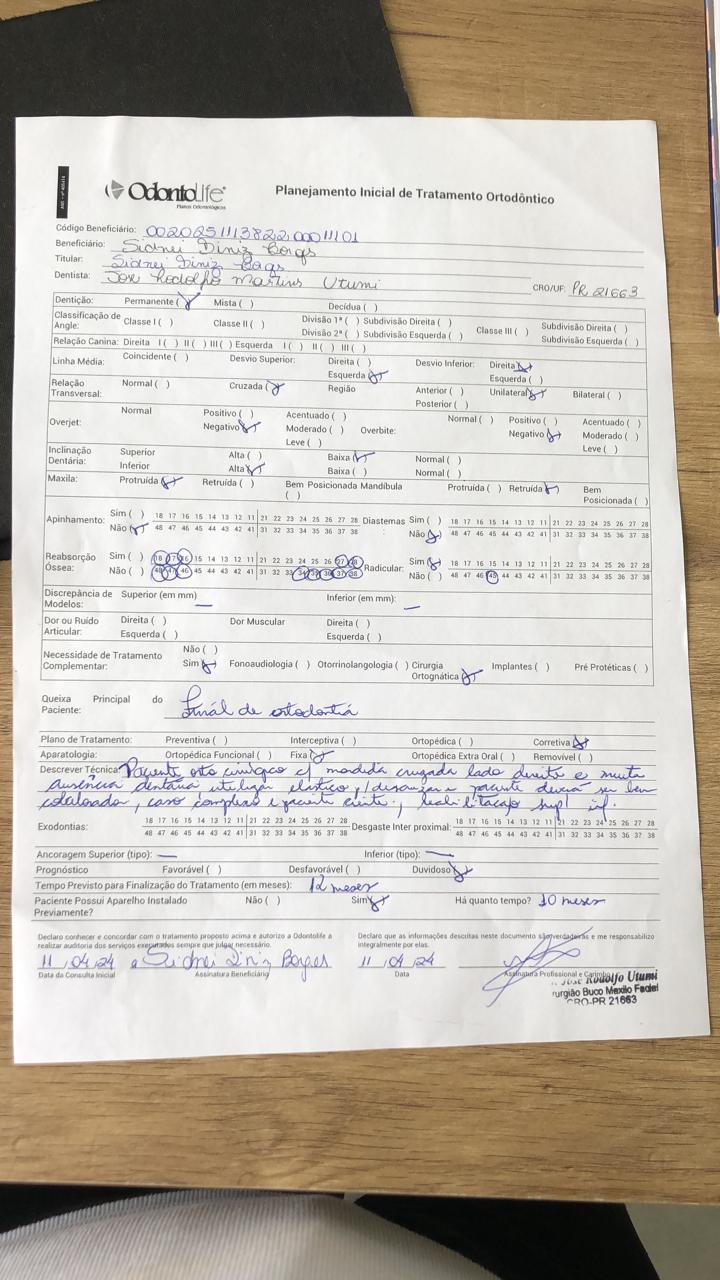 OdontoLife®
Planos Odontológicos
Planejamento Inicial de Tratamento Ortodôntico
Código Beneficiário: 00202511138220001101
Beneficiário: Sidnei Diniz Borges
Titular: Sidnei Diniz Borges
Dentista: José Rodolfo Martins Utumi CRO/UF: PR 21663
Dentição: Permanente (X) Mista ( ) Decídua ( )
Classificação de Angle: Classe I ( ) Classe II ( ) Divisão 1ª ( ) Subdivisão Direita ( ) Classe III ( ) Subdivisão Direita ( )
Divisão 2ª ( ) Subdivisão Esquerda ( ) Subdivisão Esquerda ( )
Relação Canina: Direita I ( ) II ( ) III ( ) Esquerda I ( ) II ( ) III ( )
Linha Média: Coincidente ( ) Desvio Superior: Direita ( ) Desvio Inferior: Direita (X)
Esquerda (X) Esquerda ( )
Relação Transversal: Normal ( ) Cruzada (X) Região Anterior ( ) Unilateral (X) Bilateral ( )
Posterior ( )
Overjet: Normal Positivo ( ) Acentuado ( ) Overbite: Normal ( ) Positivo ( ) Acentuado ( )
Negativo (X) Moderado ( ) Negativo (X) Moderado ( )
Leve ( ) Leve ( )
Inclinação Dentária: Superior Alta ( ) Baixa (X) Normal ( )
Inferior Alta (X) Baixa ( ) Normal ( )
Maxila: Protruída (X) Retruída ( ) Bem Posicionada ( ) Mandíbula Protruída ( ) Retruída (X) Bem Posicionada ( )
Apinhamento: Sim ( ) 18 17 16 15 14 13 12 11 21 22 23 24 25 26 27 28 Diastemas Sim ( ) 18 17 16 15 14 13 12 11 21 22 23 24 25 26 27 28
Não (X) 48 47 46 45 44 43 42 41 31 32 33 34 35 36 37 38 Não (X) 48 47 46 45 44 43 42 41 31 32 33 34 35 36 37 38
Reabsorção Óssea: Sim ( ) 18 17 16 15 14 13 12 11 21 22 23 24 25 26 27 28 Radicular: Sim (X) 18 17 16 15 14 13 12 11 21 22 23 24 25 26 27 28
Não ( ) 48 47 46 45 44 43 42 41 31 32 33 34 35 36 37 38 Não ( ) 48 47 46 45 44 43 42 41 31 32 33 34 35 36 37 38
Discrepância de Modelos: Superior (em mm) — Inferior (em mm): —
Dor ou Ruído Articular: Direita ( ) Dor Muscular Direita ( )
Esquerda ( ) Esquerda ( )
Necessidade de Tratamento Complementar: Não ( )
Sim (X) Fonoaudiologia ( ) Otorrinolangologia ( ) Cirurgia Ortognática (X) Implantes ( ) Pré Protéticas ( )
Queixa Principal do Paciente: Final de ortodontia
Plano de Tratamento: Preventiva ( ) Interceptiva ( ) Ortopédica ( ) Corretiva (X)
Aparatologia: Ortopédica Funcional ( ) Fixa (X) Ortopédica Extra Oral ( ) Removível ( )
Descrever Técnica: Paciente orto cirúrgico c/ mordida cruzada lado direito e muita
ausência dentária utilizar elástico, paciente deverá ser bem
colaborador, caso complexo e paciente ciente, reabilitação sup/ inf.
Exodontias: 18 17 16 15 14 13 12 11 21 22 23 24 25 26 27 28 Desgaste Inter proximal: 18 17 16 15 14 13 12 11 21 22 23 24 25 26 27 28
48 47 46 45 44 43 42 41 31 32 33 34 35 36 37 38 48 47 46 45 44 43 42 41 31 32 33 34 35 36 37 38
Ancoragem Superior (tipo): — Inferior (tipo): —
Prognóstico Favorável ( ) Desfavorável ( ) Duvidoso (X)
Tempo Previsto para Finalização do Tratamento (em meses): 12 meses
Paciente Possui Aparelho Instalado Previamente? Não ( ) Sim (X) Há quanto tempo? 10 meses
Declaro conhecer e concordar com o tratamento proposto acima e autorizo a Odontolife a
realizar auditoria dos serviços executados sempre que julgar necessário.
Declaro que as informações descritas neste documento são verdadeiras e me responsabilizo
integralmente por elas.
11/04/24 Sidnei Diniz Borges 11/04/24
Data da Consulta Inicial Assinatura Beneficiário Data Assinatura Profissional e Carimbo
José Rodolfo Utumi
urgião Buco Maxilo Facial
CRO-PR 21663